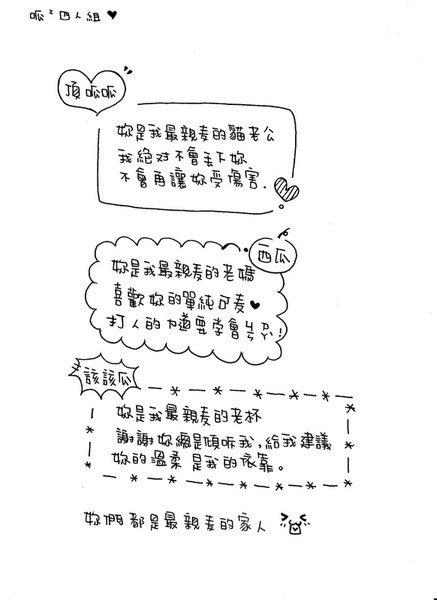 呱²四人組♥
頂呱呱
妳是我最親麦的貓老公
我絕对不會丟下妳
不會再讓妳受傷害.
西瓜
妳是我最親麦的老媽
喜歡妳的單純可麦♥
打人的力道要學會ㄐㄧㄢˇㄒㄧㄠˇ!
該該瓜
妳是我最親麦的老杯
謝謝妳總是傾听我,給我建議
妳的溫柔是我的依靠。
妳們都是最親麦的家人